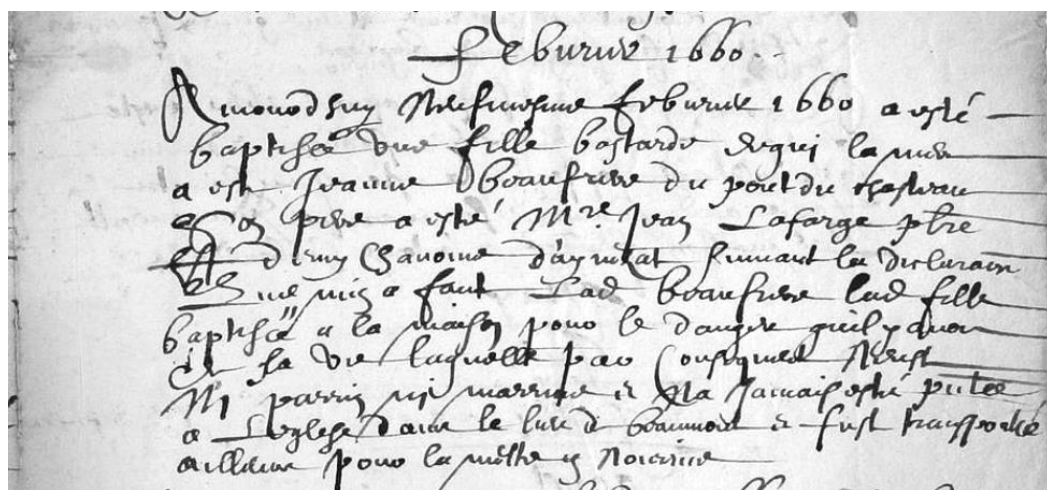 Feburier 1660
Aujourdhuy Neufviesme feburier 1660 a esté
baptisée une fille bastarde de qui la mere
a esté Jeanne beaufrere du pont du chasteau
Son pere a esté Mre. Jean Lafarge pbre
Chanoine suivant la declaraon
Que a fait Lad beaufrere lad fille
baptisée a la maison pour le danger quil y avoit
de sa vie laquelle par Consequent Neust
Ni parrin ni marrine & Na Jamais esté
a Leglese dans le lieu de beaumont & fust transportée
ailleur pour la mettre en Nourrice